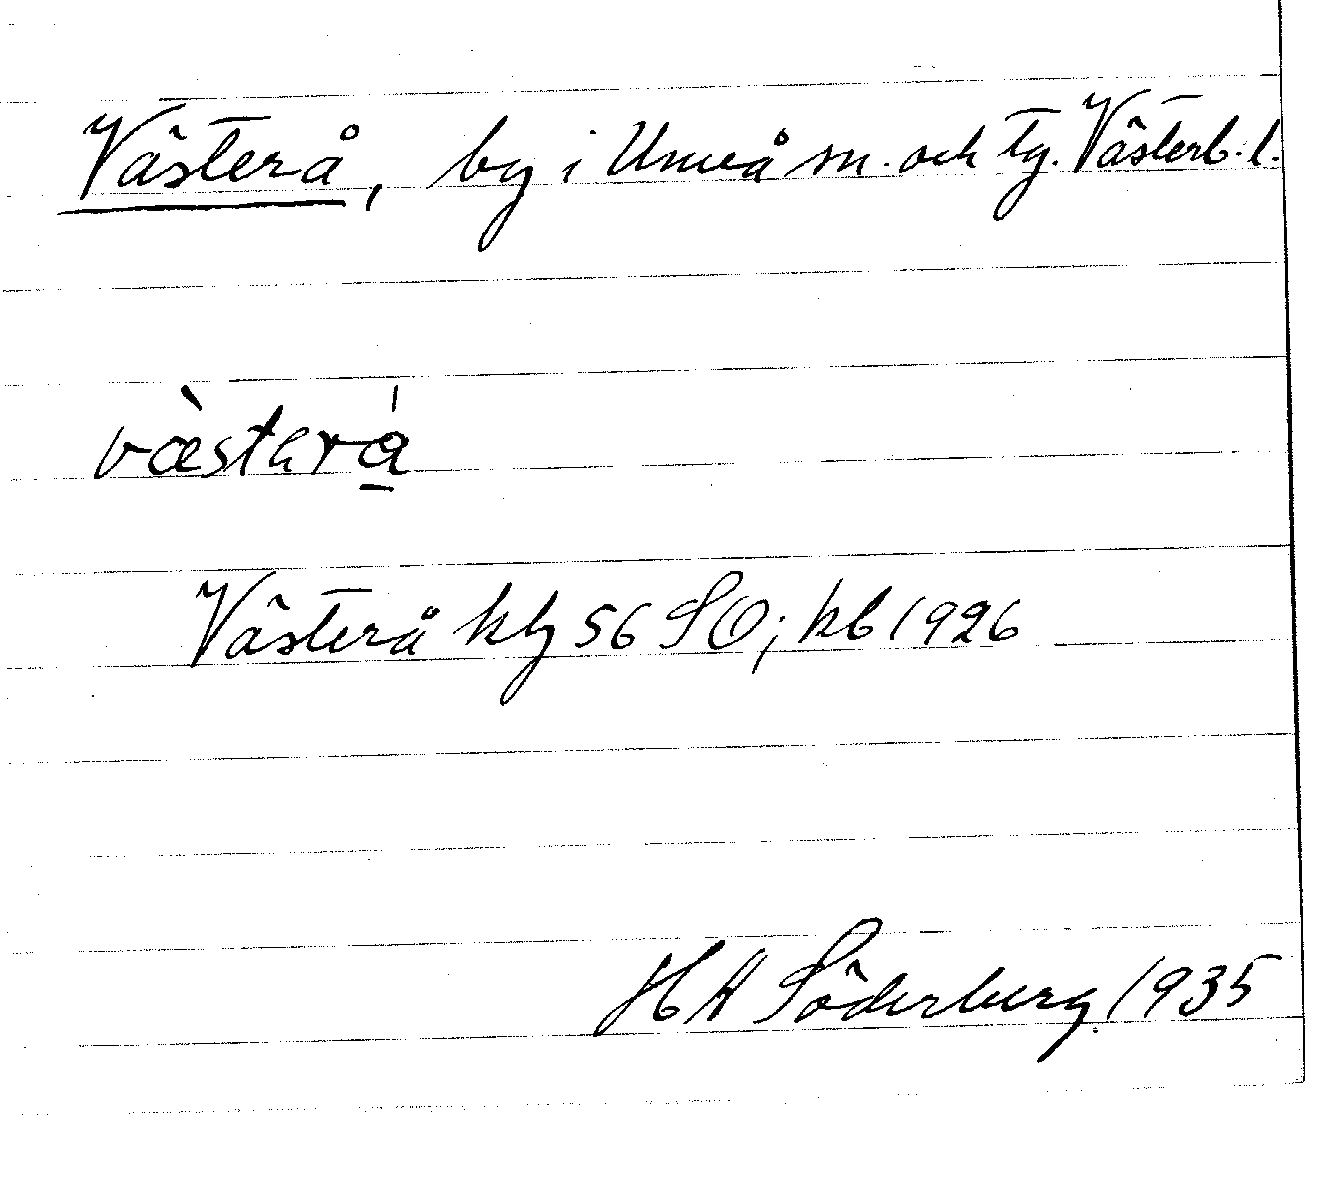 Västerå, by i Umeå sn. och tg. Västerb. l.
væ̀stərá̱
Västerå kbg 56 SO; kb 1926
HA Söderberg 1935